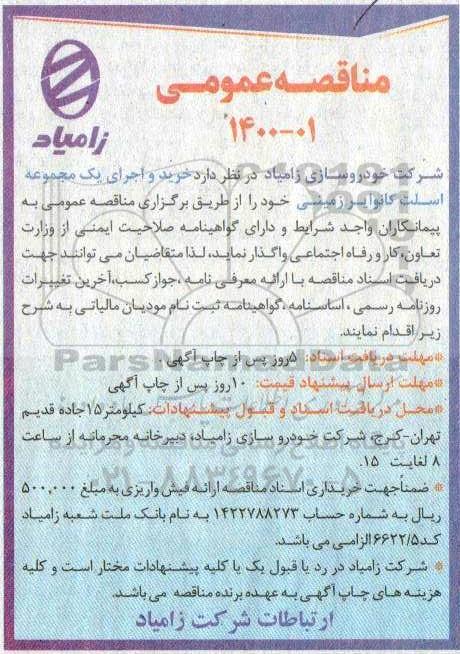 زامیاد
مناقصه عمومی
۱۴۰۰-۰۱
شرکت خودروسازی زامیاد در نظر دارد خرید و اجرای یک مجموعه
اسلت کانوایر زمینی خود را از طریق برگزاری مناقصه عمومی به
پیمانکاران واجد شرایط و دارای گواهینامه صلاحیت ایمنی از وزارت
تعاون، کار و رفاه اجتماعی واگذار نماید، لذا متقاضیان می توانند جهت
دریافت اسناد مناقصه با ارائه معرفی نامه ،جواز کسب، آخرین تغییرات
روزنامه رسمی ، اساسنامه ، گواهینامه ثبت نام مودیان مالیاتی به شرح
زیر اقدام نمایند.
*مهلت دریافت اسناد: ۵روز پس از چاپ آگهی
*مهلت ارسال پیشنهاد قیمت: ۱۰روز پس از چاپ آگهی
*محل دریافت اسناد و قبول پیشنهادات: کیلومتر ۱۵جاده قدیم
تهران-کرج، شرکت خودرو سازی زامیاد، دبیرخانه محرمانه از ساعت
۸ لغایت ۱۵.
* ضمناً جهت خریداری اسناد مناقصه ارائه فیش واریزی به مبلغ ۵۰۰,۰۰۰
ریال به شماره حساب ۱۴۲۲۷۸۸۲۷۳ به نام بانک ملت شعبه زامیاد
کد ۶۶۲۲/۵ الزامی می باشد.
* شرکت زامیاد در رد یا قبول یک یا کلیه پیشنهادات مختار است و کلیه
هزینه های چاپ آگهی به عهده برنده مناقصه می باشد.
ارتباطات شرکت زامیاد
ParsNamadData
۰۲۱-۸۸۳۴۹۶۷۰-۵